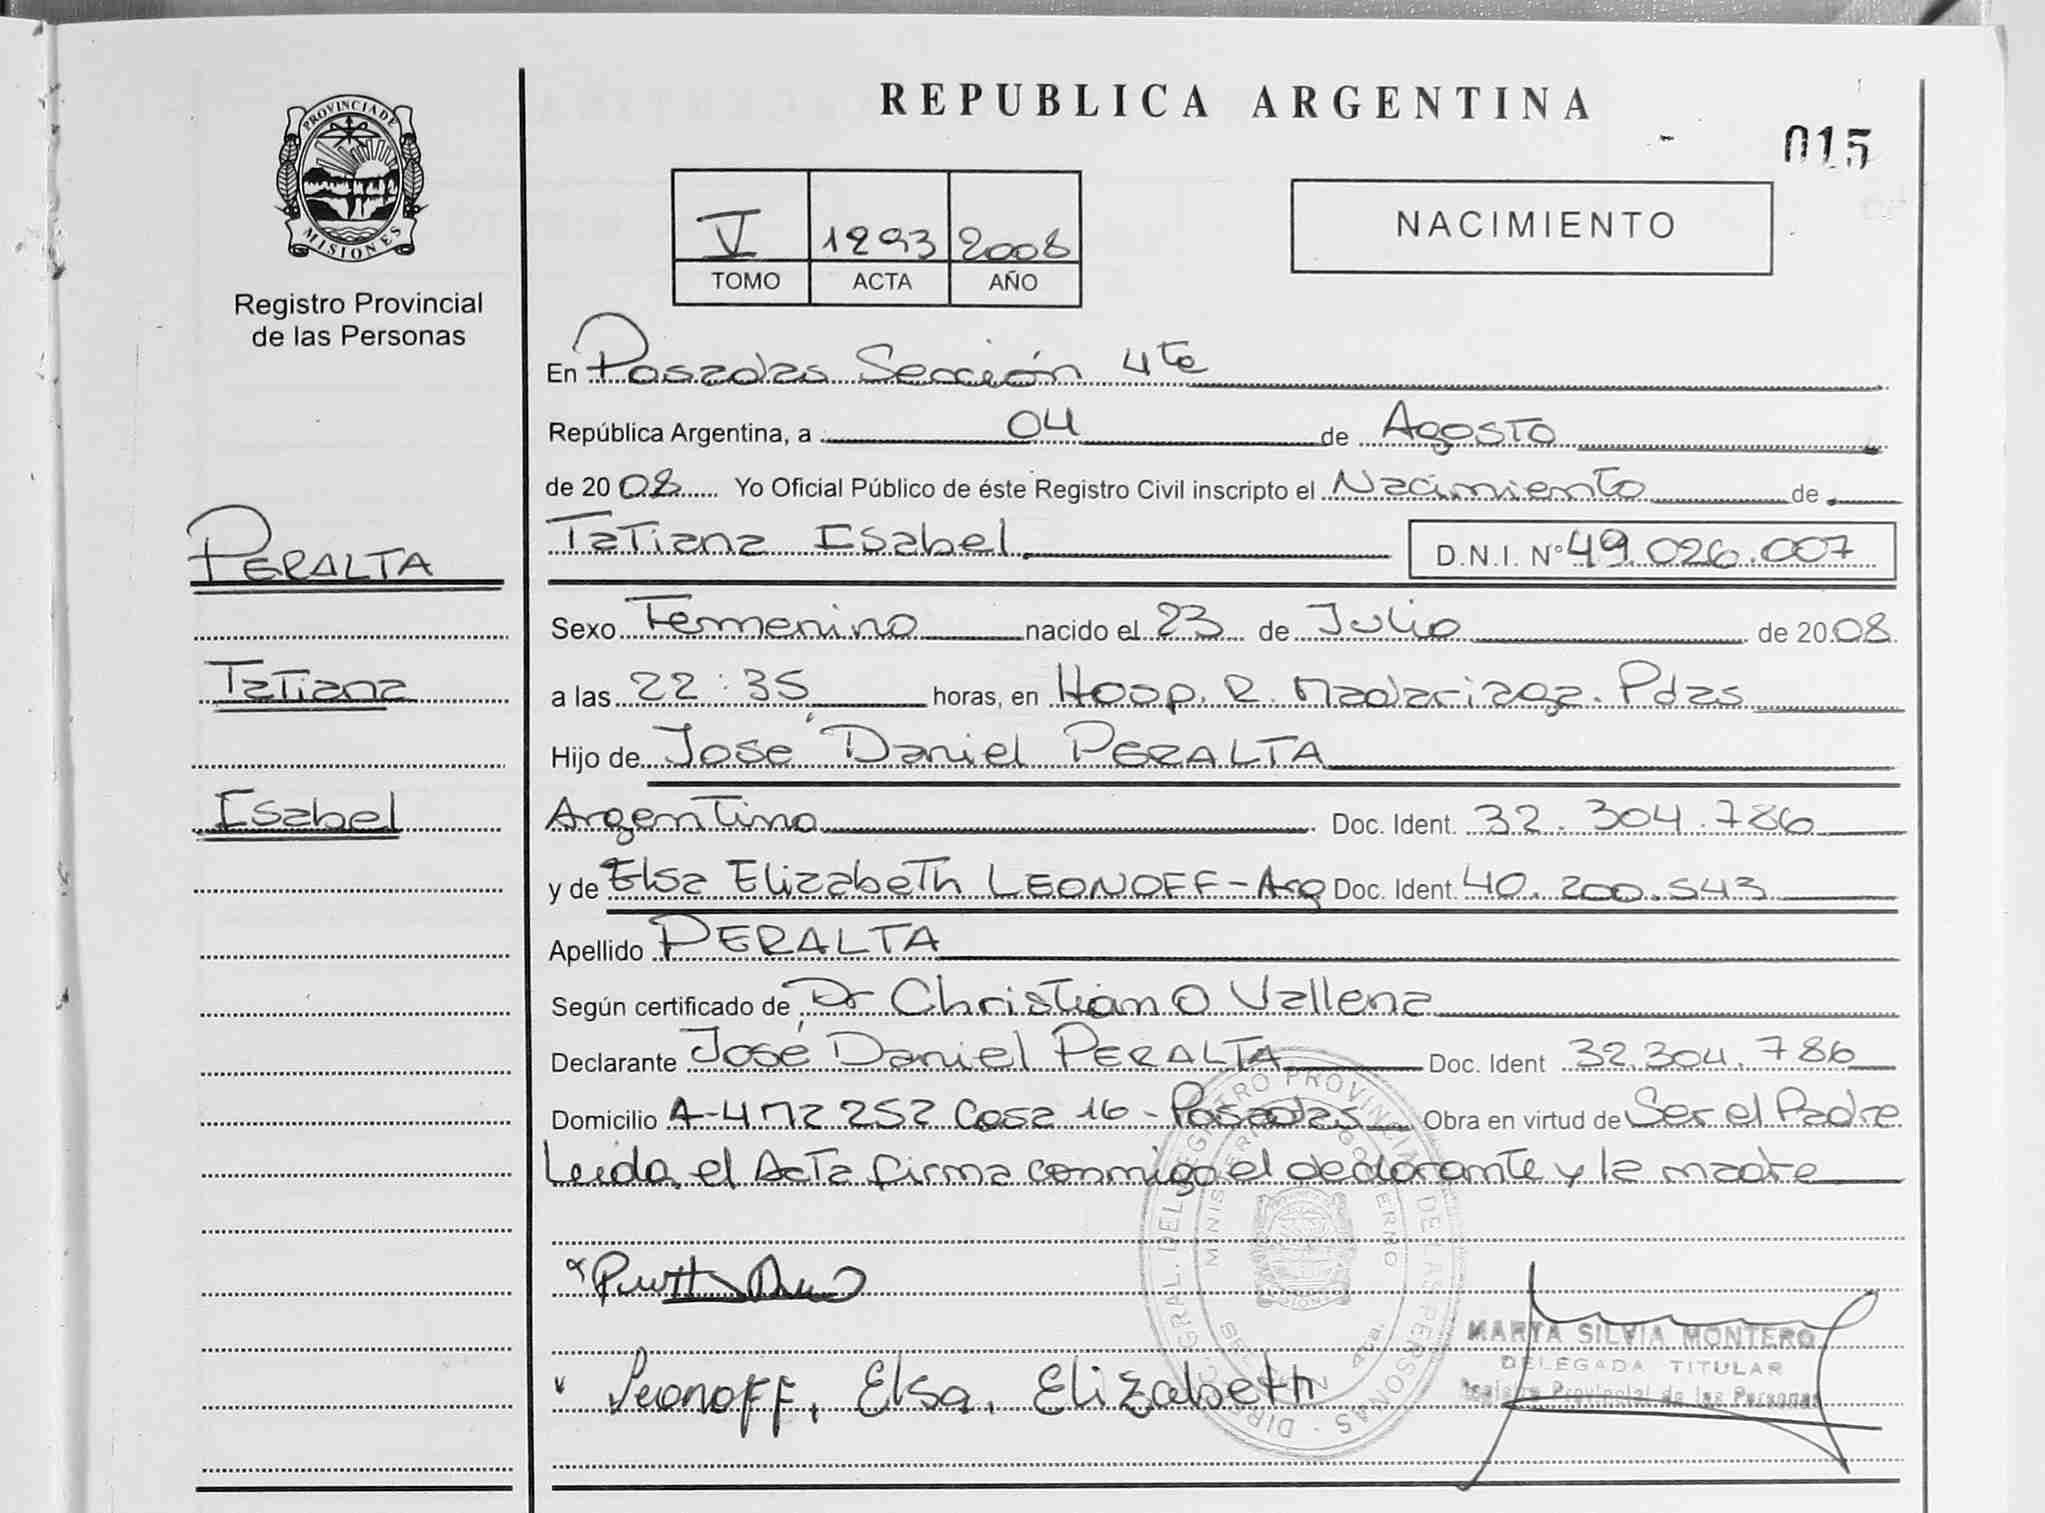 PROVINCIA DE
MISIONES
Registro Provincial
de las Personas
REPUBLICA ARGENTINA
015
V 1293 2008
TOMO ACTA AÑO
NACIMIENTO
En Posadas Sección 4ta
República Argentina, a 04 de Agosto
de 2008 Yo Oficial Público de éste Registro Civil inscripto el Nacimiento de
PERALTA
Tatiana Isabel D.N.I. N° 49.026.007
Sexo Femenino nacido el 23 de Julio de 2008
Tatiana
a las 22:35 horas, en Hosp. R. Madariaga. Pdas
Hijo de José Daniel PERALTA
Isabel
Argentino Doc. Ident. 32.304.786
y de Elsa Elizabeth LEONOFF-Arg Doc. Ident. 40.200.543
Apellido PERALTA
Según certificado de Dr Christian O Vallena
Declarante José Daniel PERALTA Doc. Ident 32.304.786
Domicilio A-4 Mz 252 Casa 16 - Posadas Obra en virtud de Ser el Padre
Leída el Acta firma conmigo el declarante y la madre
DIREC. GRAL. DEL REGISTRO PROVINCIAL DE LAS PERSONAS
MINISTERIO GOBIERNO
SECCION 4ta.
MISIONES
MARTA SILVIA MONTERO
DELEGADA TITULAR
Registro Provincial de las Personas
Leonoff, Elsa, Elizabeth